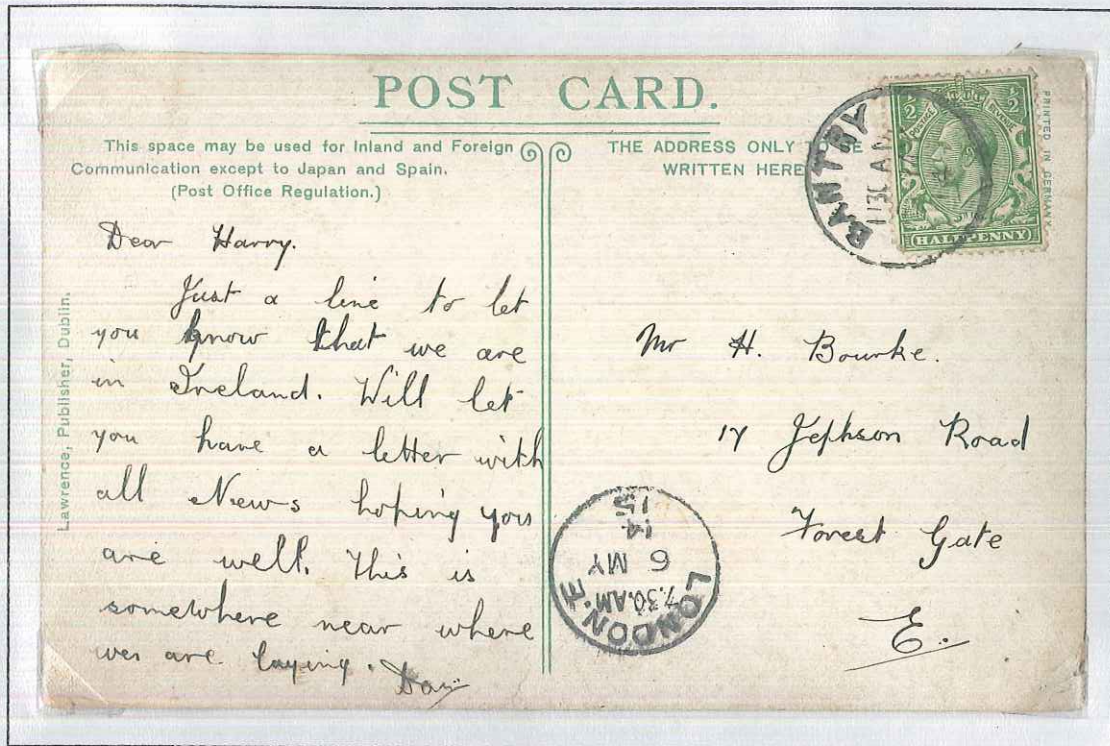 POST CARD.
This space may be used for Inland and Foreign
Communication except to Japan and Spain.
(Post Office Regulation.)
THE ADDRESS ONLY TO BE
WRITTEN HERE
BANTRY
1130 AM
1/2 POSTAGE REVENUE 1/2
HALFPENNY
PRINTED IN GERMANY
Lawrence, Publisher, Dublin.
Dear Harry.
Just a line to let
you know that we are
in Ireland. Will let
you have a letter with
all News hoping you
are well. This is
somewhere near where
we are laying.
Mr H. Bourke.
17 Jephson Road
Forest Gate
E.
LONDON.E
7.30.AM
6 MY
14
15